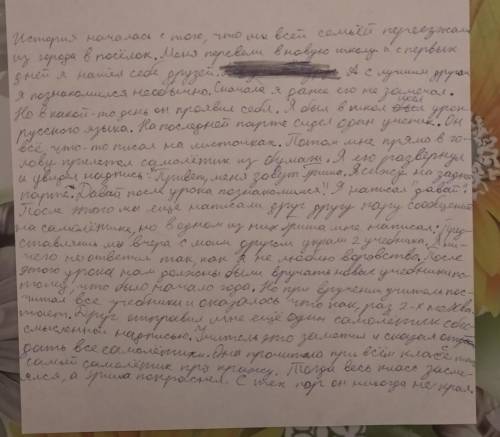 История началась с того, что мы всей семьёй переезжали
из города в посёлок. Меня перевели в новую школу и с первых
дней я нашёл себе друзей. А с лучшим другом
я познакомился необычно. Сначала я даже его не замечал.
Но в какой-то день он проявил себя. Я был в школе шёл урок
русского языка. На последней парте сидел один ученик. Он
всё что-то писал на листочках. Потом мне прямо в го-
лову прилетел самолётик из бумаги. Я его развернул
и увидел надпись: "Привет, меня зовут Гриша. Я сижу на задней
парте. Давай после урока познакомимся". Я написал "Давай".
После этого мы ещё написали друг другу пару сообщений
на самолётике, но в одном из них Гриша мне написал: "Пред-
ставляешь мы вчера с моим другом украли 2 учебника. Я ни-
чего не ответил так, как я не люблю воровство. После
этого урока нам должны были вручать новые учебники по-
тому, что было начало года. Но при вручении учитель пос-
читал все учебники и оказалось что как, раз 2-х не хва-
тает. Друг отправил мне ещё один самолётик с бес-
смысленной надписью. Учитель это заметил и сказал от
дать все самолётики. Она прочитала при всём класе
самый самолётик про кражу. Тогда весь класс засме-
ялся, а Гриша покраснел. С тех пор он никогда не крал.